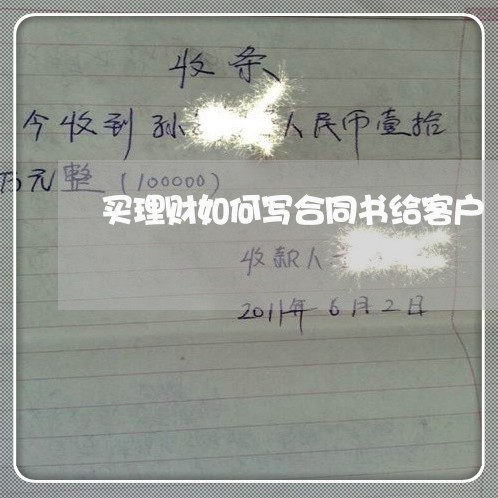 收条
今收到孙 人民币壹拾
万元整(100000)
买理财如何写合同书给客户
收款人
2011年6月2日